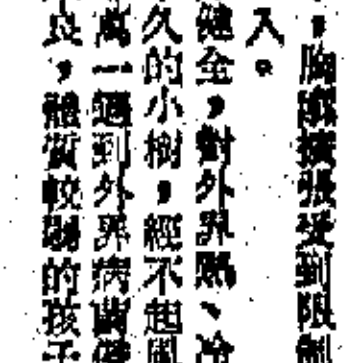 ，胸廓擴張受到限制
入。
健全，對外界熱、冷
久的小樹，經不起風
萬一遇到外界病菌侵
不良，體質較弱的孩子